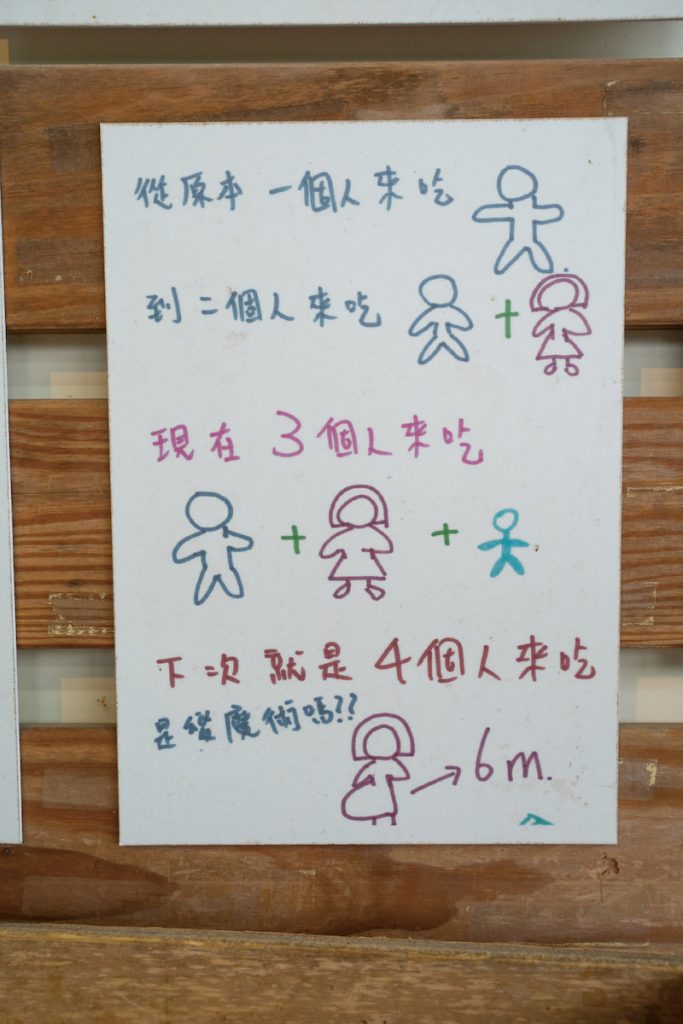 從原本一個人來吃
到二個人來吃
+
現在 3 個人來吃
+ +
下次就是 4 個人來吃
是變魔術嗎??
6 m.